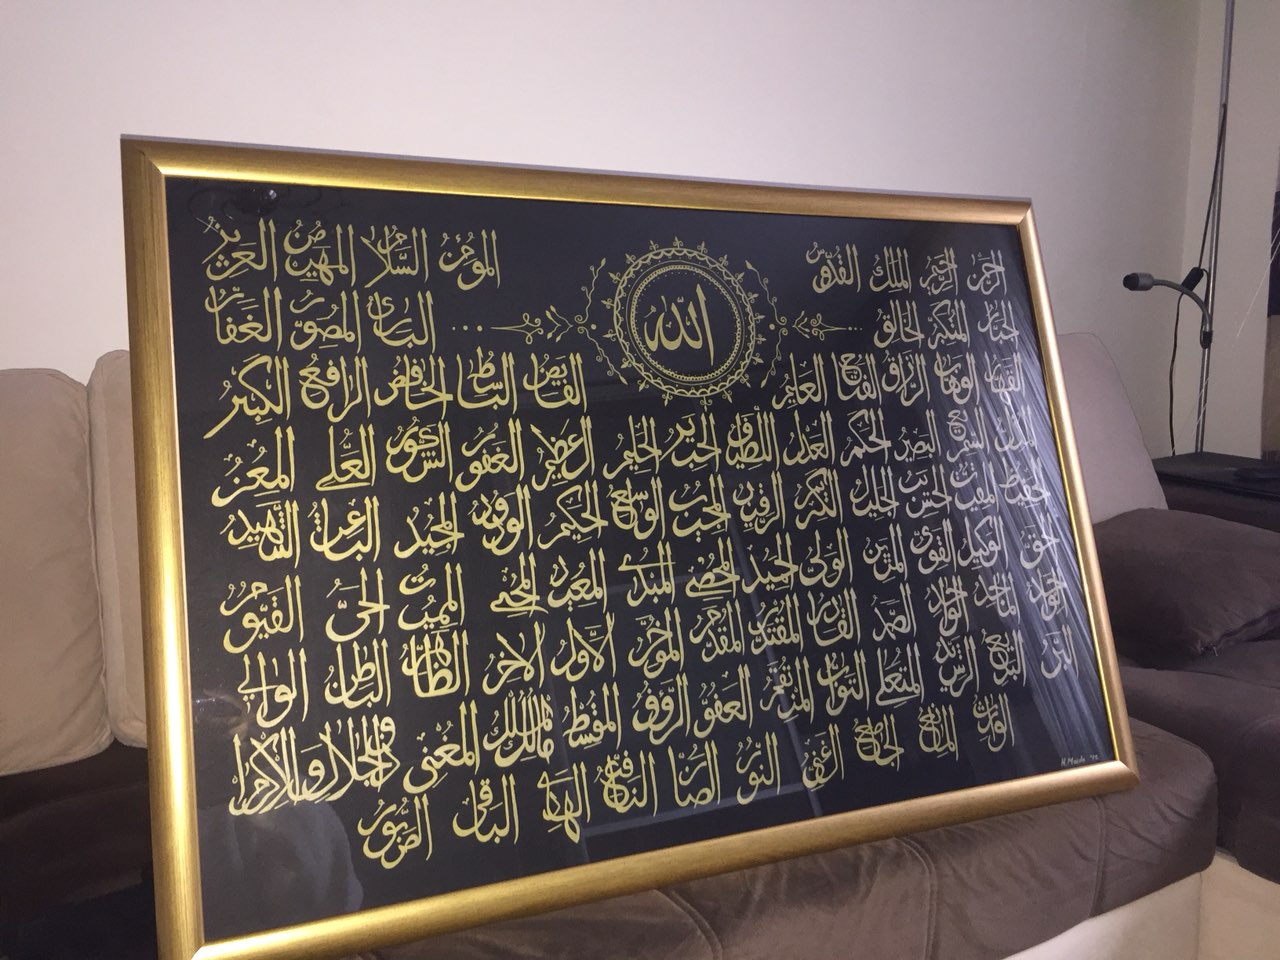 الرحمن الرحيم الملك القدوس الله المؤمن السلام المهيمن العزيز
جبار المتكبر الخالق البارئ المصور الغفار
القهار الوهاب الرزاق الفتاح العليم القابض الباسط الخافض الرافع الكبير
السميع البصير الحكم العدل اللطيف الخبير الحليم العظيم الغفور الشكور العلي المعز
حفيظ المقيت حسيب الجليل الكريم الرقيب المجيب الواسع الحكيم الودود المجيد الباعث الشهيد
حق الوكيل القوي المتين الولي الحميد المحصي المبدئ المعيد المحيي المميت الحي القيوم
الواجد الماجد الواحد الصمد القادر المقتدر المقدم المؤخر الأول الآخر الظاهر الباطن الوالي
البر البديع الرشيد المتعالي التواب المنتقم العفو الرؤوف المقسط مالك الملك المغني ذو الجلال والإكرام
الوارث المانع الجامع الغني النور الضار النافع الهادي الباقي الصبور